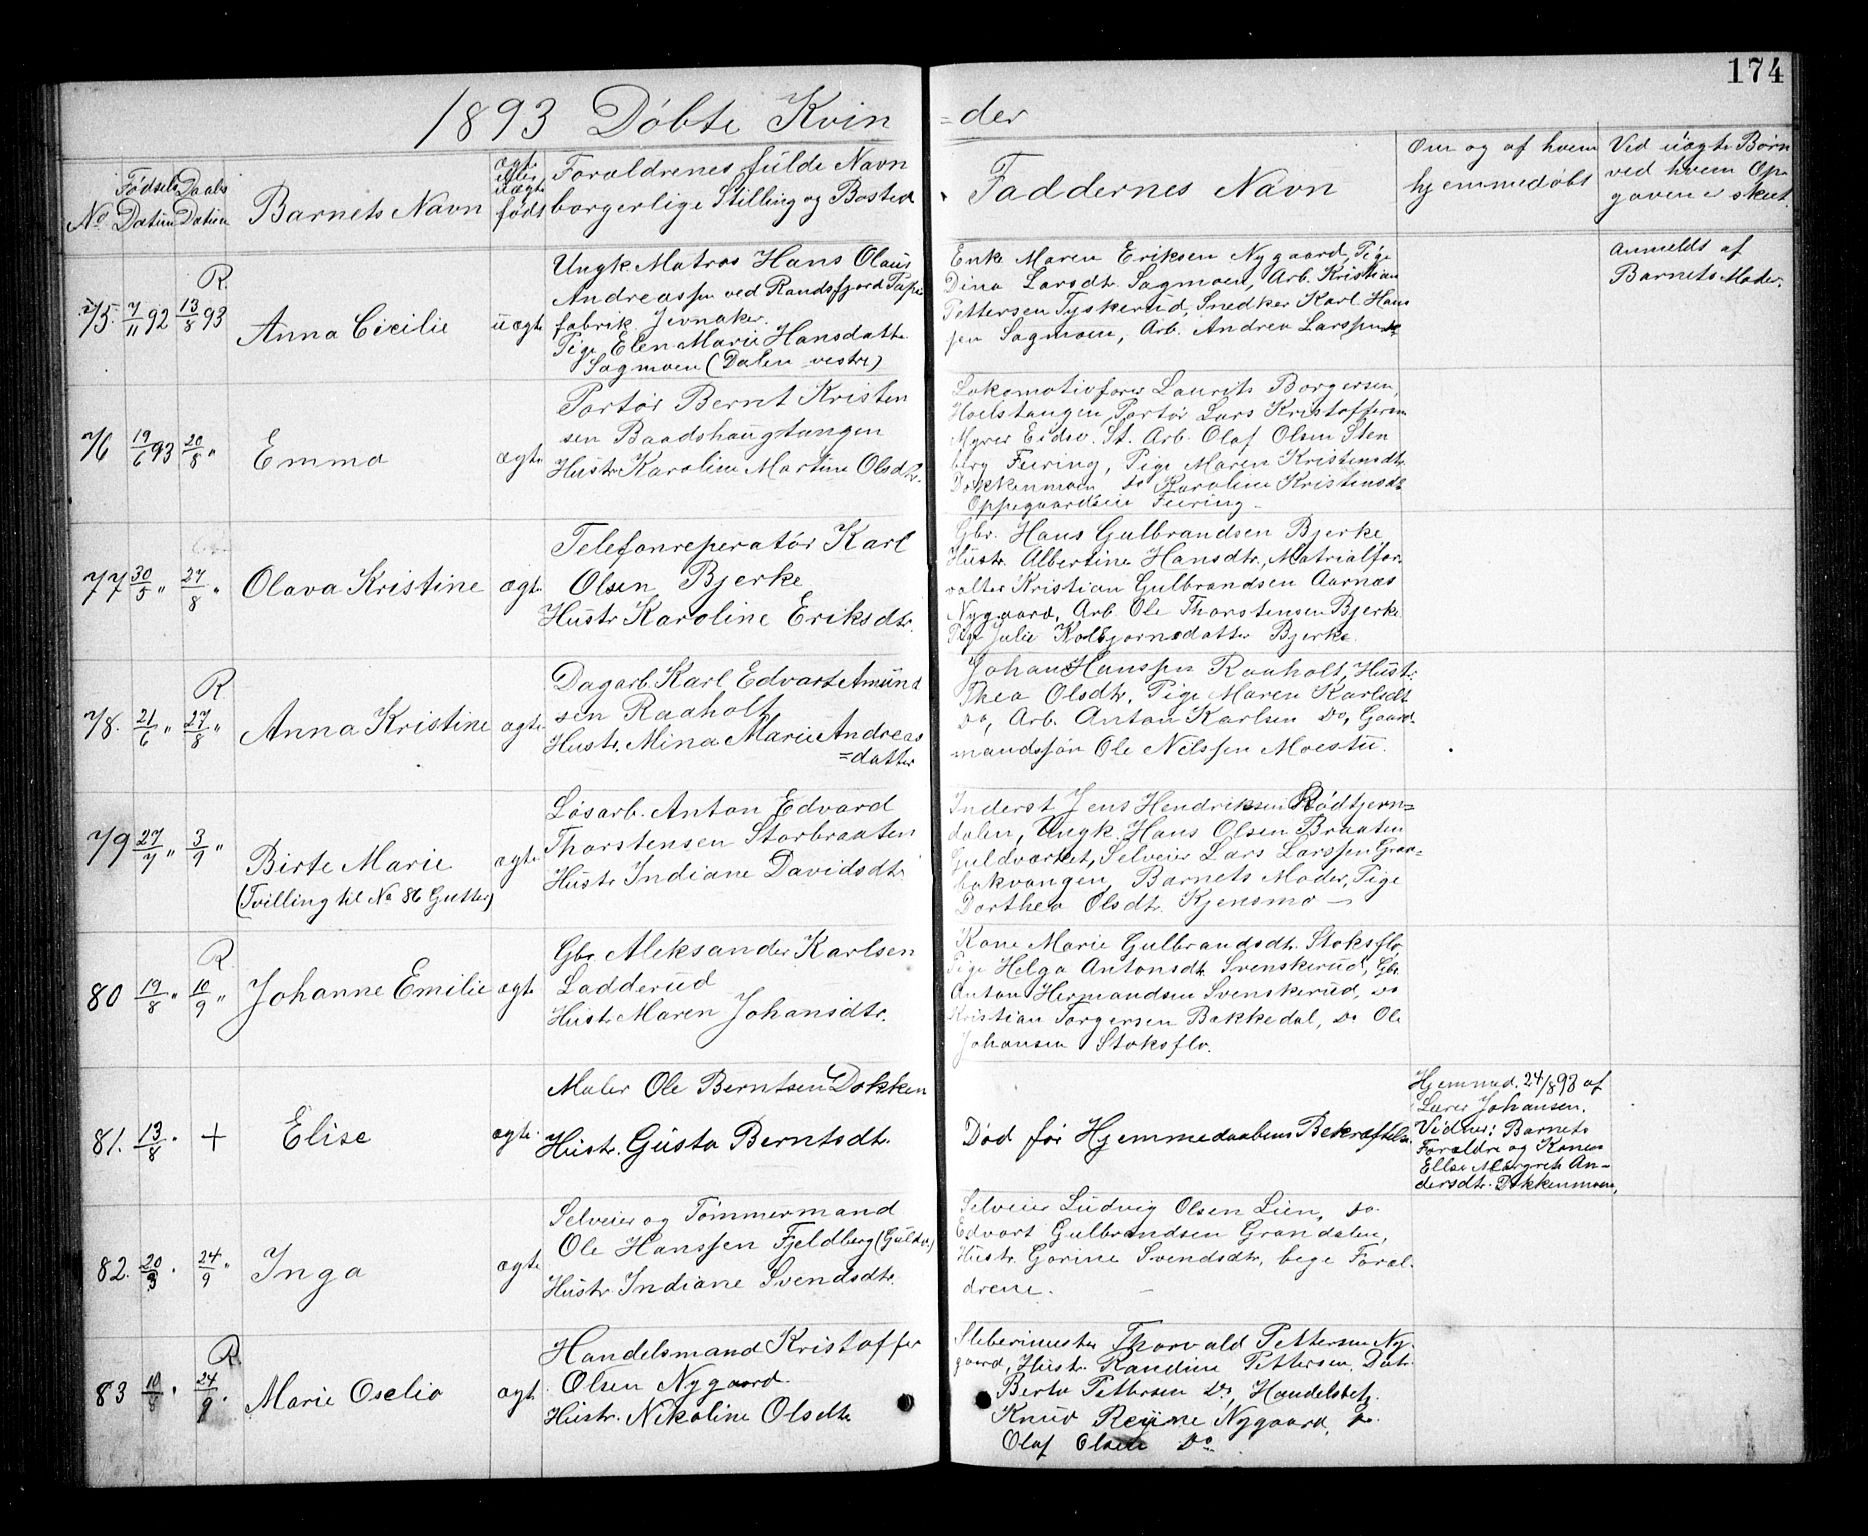 174
1893 Döbte Kvin
=der
No
Fødsels
Datum
Daabs
Datum
Barnets Navn
ægte
eller
uægte
født
Forældrenes fulde Navn
borgerlige Stilling og Bosted
Faddernes Navn
Om og af hvem
hjemmedøbt
Ved uægte Børn
ved hvem Op
gaven er skeet.
R.
75. 7/11 92 13/8 93 Anna Cicilie uægte
Ungk Matros Hans Olaus
Andreassen ved Randsfjord Papir
fabrik Jevnaker.
Pige Elen Marie Hansdatter
Sagmoen (Dalen vestre)
Enke Maren Eriksen Nygaard, Pige
Dina Larsdtr. Sagmoen, Arb. Kristian
Pettersen Tyskerud, Snedker Karl Hans
sen Sagmoen, Arb. Andrea Larssen Do
Anmeldt af
Barnets Moder.
76 19/6 93 20/8 " Emma ægte
Portör Bernt Kristen
sen Baadshaugtangen
Hustr. Karoline Martine Olsdtr.
Lokomotivfører Laurits Borgersen,
Hoelstangen, Portör Lars Kristoffersen
Myrer Eidsv. St. Arb. Olaf Olsen Sten
berg Feiring, Pige Maren Kristensdtr.
Dokkenmoen Do Karoline Kristensdtr
Oppegaardseie Feiring.
77 30/5 " 27/8 " Olava Kristine ægte
Telefonreperatör Karl
Olsen Bjerke
Hustr Karoline Eriksdtr.
Gbr. Hans Gulbrandsen Bjerke,
Hustr. Albertine Hansdtr, Matrialfor-
valter Kristian Gulbrandsen Aarnæs
Nygaard, Arb. Ole Thorstensen Bjerke
Pige Julie Kolbjørnsdatter Bjerke.
R
78. 21/6 " 27/8 " Anna Kristine ægte
Dagarb. Karl Edvart Amund
sen Raaholt
Hustr. Mina Marie Andreas
=datter
Johan Hanssen Raaholt, Hustr.
Thea Olsdtr, Pige Maren Karlsdtr
Do, Arb. Anton Karlsen Do, Gaard-
mandssøn Ole Nilssen Moestu.
79 27/7 " 3/9 " Birte Marie
(Tvilling til No 86 Gutter)
ægte
Løsarb. Anton Edvard
Thorstensen Storbraaten
Hustr Indiane Davidsdtr
Inderst Jens Hendriksen Rödtjern=
dalen, Ungk. Hans Olsen Braaten
Guldværket, Selveier Lars Larssen Græs=
bakvangen, Barnets Moder, Pige
Dorthea Olsdtr. Kjensmo
R.
80 19/8 " 10/9 " Johanne Emilie ægte
Gbr. Aleksander Karlsen
Ladderud
Hustr Maren Johansdtr.
Kone Marie Gulbrandsdtr. Stoksflo,
Pige Helga Antonsdtr. Svenskerud, Gbr
Anton Hermandsen Svenskerud, Do
Kristian Torgersen Bakkedal, Do Ole
Johansen Stoksflo.
81. 13/8 " + Elise ægte
Maler Ole Berntsen Dokken
Hustr. Gusta Berntsdtr.
Död før Hjemmedaabens Bekræftelse.
Hjemmed. 24/8 93 af
Lærer Johansen.
Vidner: Barnets
Forældre og Konen
Elise Margrete An-
dersdtr. Dokkenmoen,
82. 20/3 " 24/9 " Inga ægte
Selveier og Tömmermand
Ole Hanssen Fjeldberg (Guldv)
Hustr. Indiane Svendsdtr.
Selveier Ludvig Olsen Lien, Do.
Edvart Gulbrandsen Grandalen,
Hustr. Gorine Svendsdtr, bege Foræl-
drene.
R.
83 10/8 " 24/9 " Marie Oselia ægte
Handelsmand Kristoffer
Olsen Nygaard.
Hustr. Nikoline Olsdtr
Sliberimester Thorvald Pettersen Ny-
gaard, Hustr. Randine Pettersen, Datr.
Berta Pettersen Do, Handelsbetj.
Knud Nygaard, Do.
Olaf Olsen Do